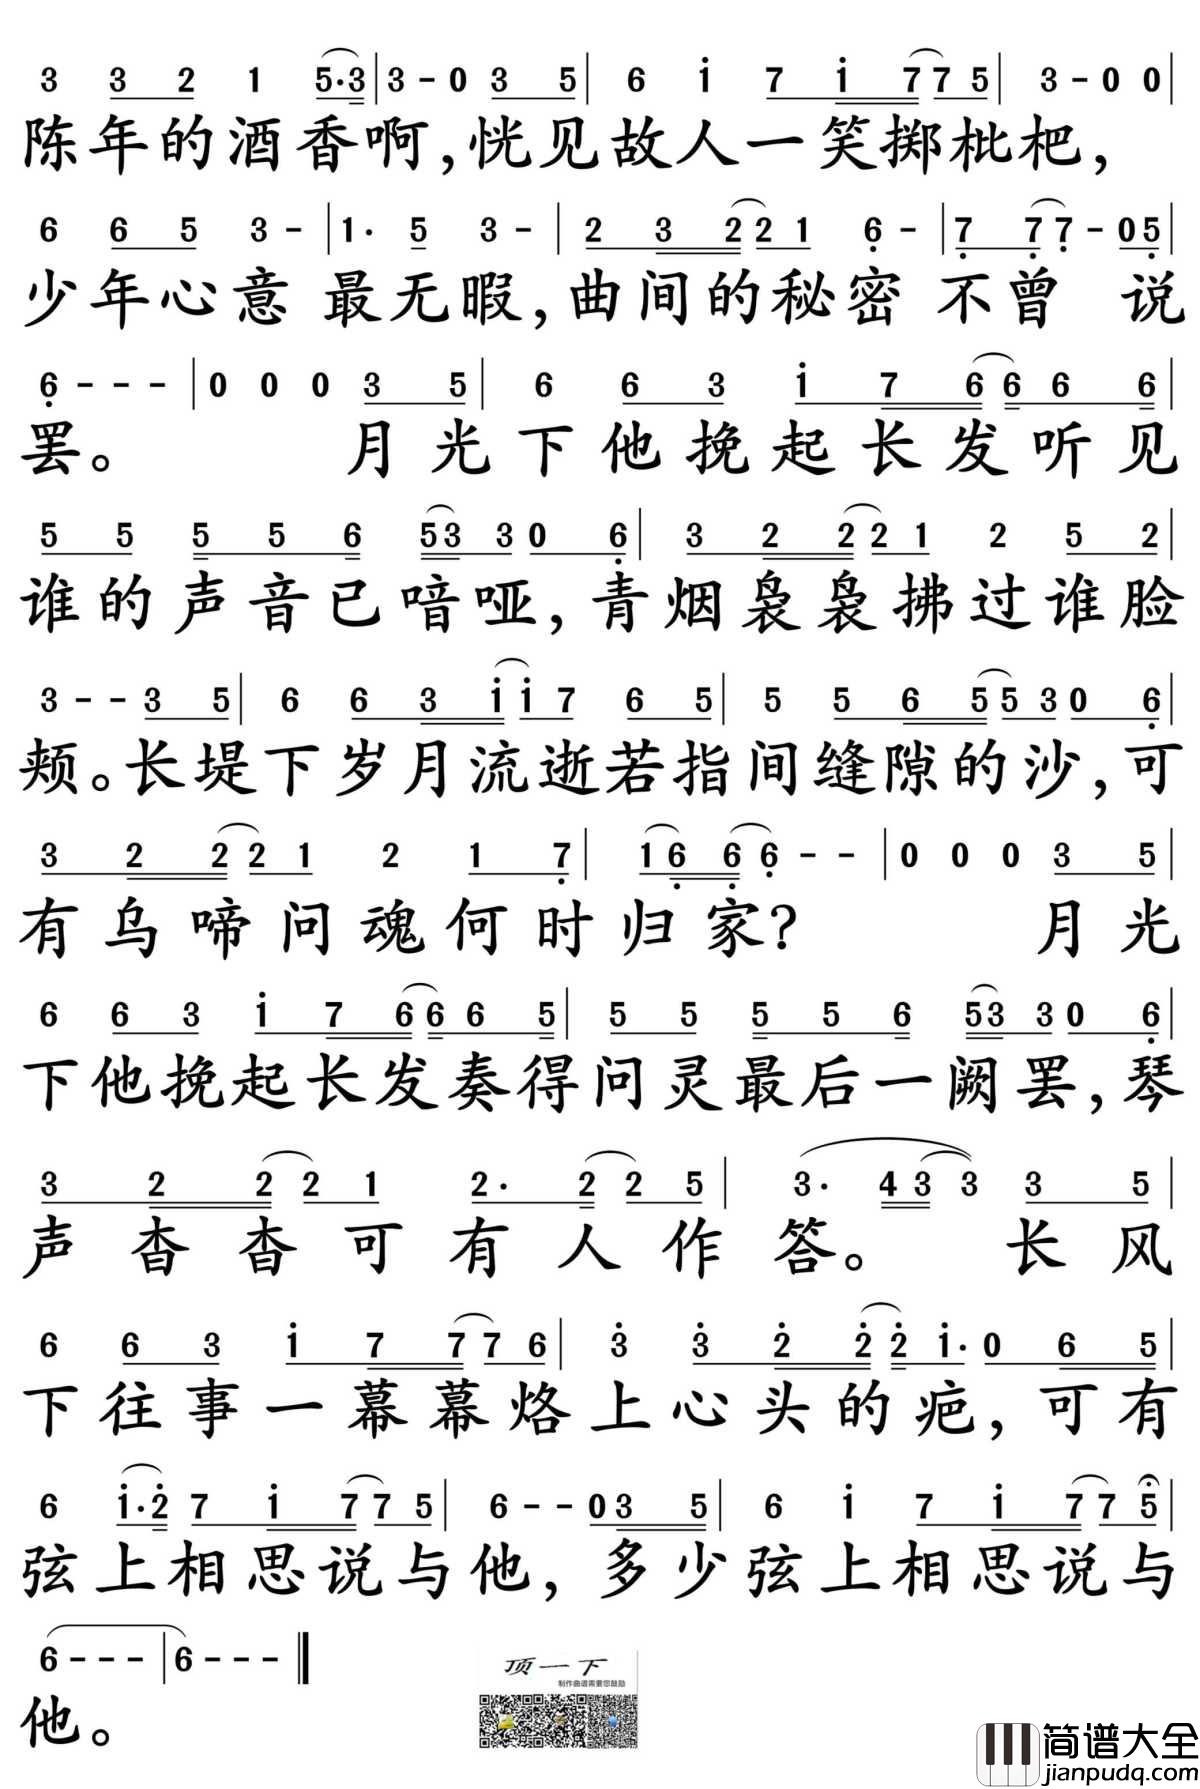 3 3 2 1 5·3|3-0 3 5|6 i 7 i 7 7 5|3-0 0|
陈年的酒香啊,恍见故人一笑掷枇杷,
6 6 5 3-|1· 5 3-|2 3 2 2 1 6-|7 7 7-0 5|
少年心意最无暇,曲间的秘密不曾 说
6---|0 0 0 3 5|6 6 3 i 7 6 6 6 6|
罢。 月光下他挽起长发听见
5 5 5 5 6 5 3 3 0 6|3 2 2 2 1 2 5 2|
谁的声音已喑哑,青烟袅袅拂过谁脸
3--3 5|6 6 3 i i 7 6 5|5 5 6 5 5 3 0 6|
颊。长堤下岁月流逝若指间缝隙的沙,可
3 2 2 2 1 2 1 7|1 6 6 6--|0 0 0 3 5|
有乌啼问魂何时归家? 月光
6 6 3 i 7 6 6 6 5|5 5 5 5 6 5 3 3 0 6|
下他挽起长发奏得问灵最后一阙罢,琴
3 2 2 2 1 2· 2 2 5|3· 4 3 3 3 5|
声杳杳可有人作答。 长风
6 6 3 i 7 7 7 6|3 3 2 2 2 i·0 6 5|
下往事一幕幕烙上心头的疤,可有
6 i·2 7 i 7 7 5|6--0 3 5|6 i 7 i 7 7 5|
弦上相思说与他,多少弦上相思说与
6---|6---‖
他。
顶一下
制作曲谱需要您鼓励
简谱大全
jianpudq.com